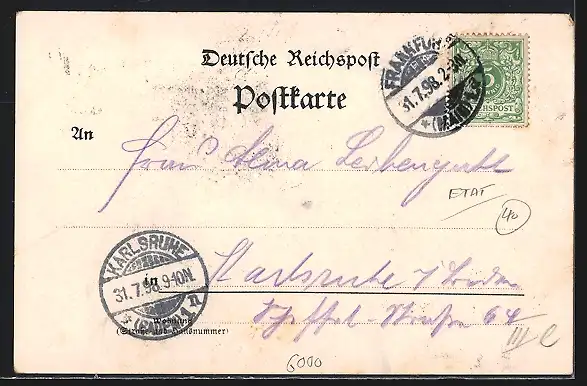 Deutsche Reichspost
Postkarte
FRANKFURT
31.7.98.2-3N.
*(MAIN)
5
REICHSPOST
An
Frau Alma Leibengutt
ETAT
40
KARLSRUHE
31.7.98.9-10N.
*(BADEN)1.n
in
Karlsruhe i/Baden
Wohnung
(Strasse und Hausnummer)
Scheffel-Straße 64
III
6000